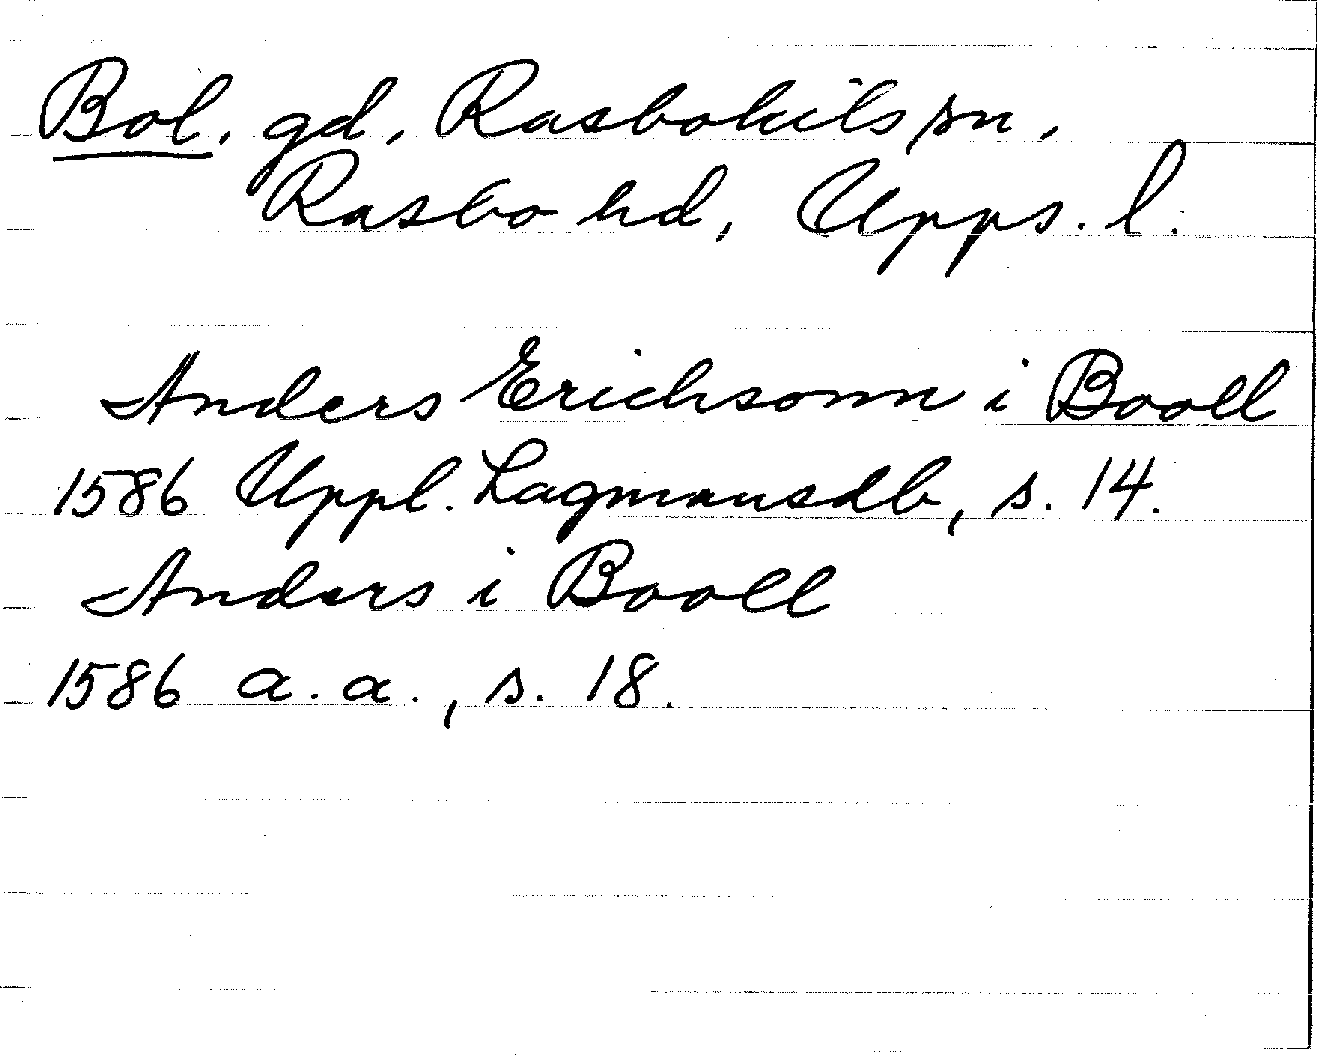 Bol, gd, Rasbokils sn,
Rasbo hd, Upps. l.
Anders Erichsonn i Booll
1586 Uppl. Lagmansdb, s. 14.
Anders i Booll
1586 a. a., s. 18.